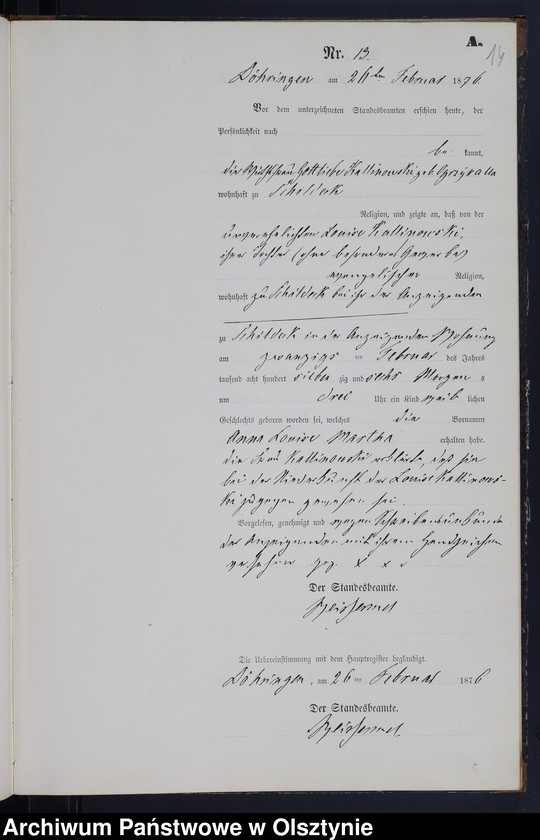 A.
14
Nr. 13.
Döhringen am 26ten Februar 1876.
Vor dem unterzeichneten Standesbeamten erschien heute, der
Persönlichkeit nach
be kannt,
die Gottliebe Kallinowski geb.
wohnhaft zu Schildeck
Religion, und zeigte an, daß von der
unverehelichten Louise Kallinowski,
ihrer Tochter (ohne besonderes Gewerbe)
evangelischer Religion,
wohnhaft zu Schildeck bei ihr der Anzeigenden
zu Schildeck in der Anzeigenden Wohnung
am zwanzigs ten Februar des Jahres
tausend acht hundert sieben zig und sechs Morgen s
um drei Uhr ein Kind weib lichen
Geschlechts geboren worden sei, welches die Vornamen
Anna Louise Martha erhalten habe.
die Frau Kallinowski erklärte, daß sie
bei der Niederkunft der Louise Kallinows-
ki zugegen gewesen sei.
Vorgelesen, genehmigt und wegen Schreibensunkunde
der Anzeigenden mit ihrem Handzeichen
versehen gez. x x x
Der Standesbeamte.
Die Uebereinstimmung mit dem Hauptregister beglaubigt.
Döhringen, am 26 ten Februar 1876
Der Standesbeamte.
Archiwum Państwowe w Olsztynie